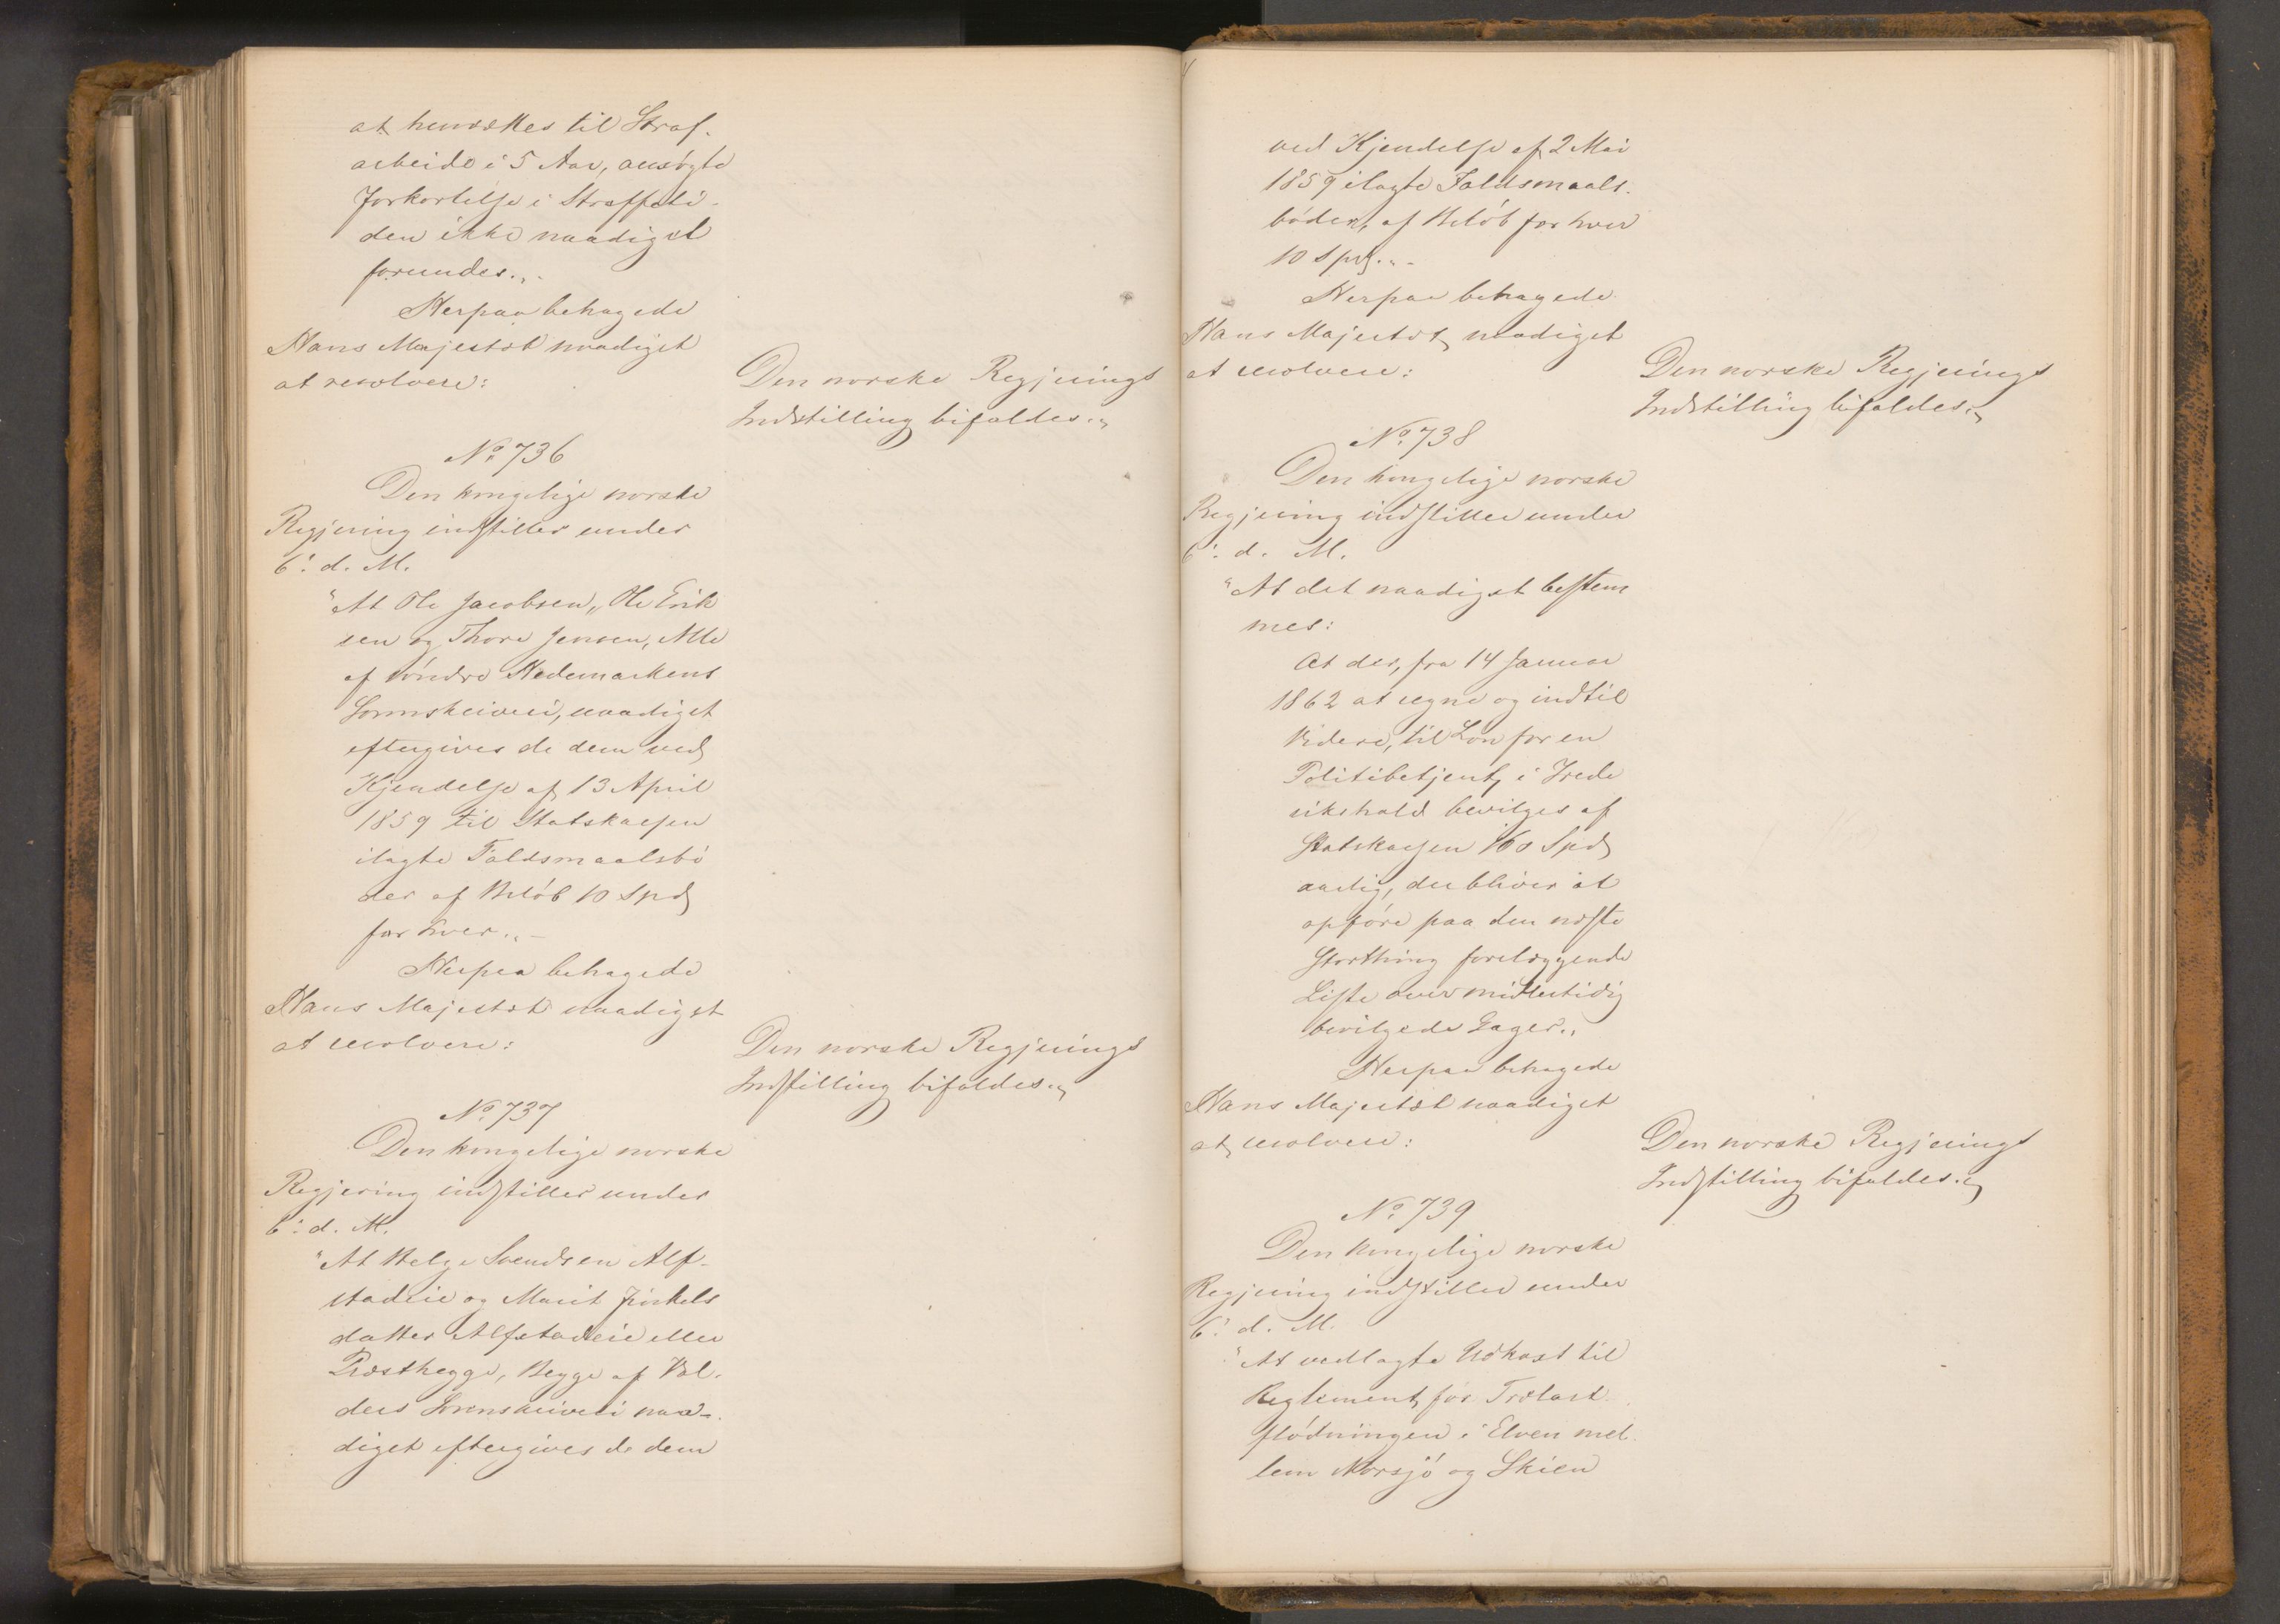 at hensættes til Straf-
arbeide i 5 Aar, ansøgte
Forkortelse i Straffeti-
den ikke naadigst
forundes.„
Herpaa behagede
Hans Majestæt naadigst
at resolvere:
Den norske Regjerings
Indstilling bifaldes.„
No. 736
Den kongelige norske
Regjering indstiller under
6. d. M.
"At Ole Jacobsen, Ole Erik
sen og Thore Jensen, Alle
af søndre Hedemarkens
Sorenskriveri, naadigst
eftergives de dem ved
Kjendelse af 13 April
1859 til Statskassen
ilagte Faldsmaalsbø
der af Beløb 10 Spd
for hver.„
Herpaa behagede
Hans Majestæt naadigst
at resolvere:
Den norske Regjerings
Indstilling bifaldes.„
No. 737
Den kongelige norske
Regjering indstiller under
6. d. M.
"At Helge Svendsen Alf-
stadeie og Marit
datter Alfstadeie eller
Præsthegge, Begge af Val-
ders Sorenskriveri naa-
digst eftergives de dem
ved Kjendelse af 2 Mai
1859 ilagte Faldsmaals-
bøder, af Beløb for hver
10 Spd.„
Herpaa behagede
Hans Majestæt naadigst
at resolvere:
Den norske Regjerings
Indstilling bifaldes.„
No. 738
Den kongelige norske
Regjering indstiller under
6. d. M.
"At det naadigst bestem
mes:
At der, fra 14 Januar
1862 at regne og indtil
Videre, til Løn for en
Politibetjent i Frede
rikshald bevilges af
Statskassen 160 Spd
aarlig, der bliver at
opføre paa den næste
Storthing forelæggende
Liste over midlertidig
bevilgede Gager.„
Herpaa behagede
Hans Majestæt naadigst
at resolvere:
Den norske Regjerings
Indstilling bifaldes.„
No. 739
Den kongelige norske
Regjering indstiller under
6. d. M.
"At vedlagte Udkast til
Reglement for Trælast-
flødningen i Elven mel-
lem Norsjø og Skien